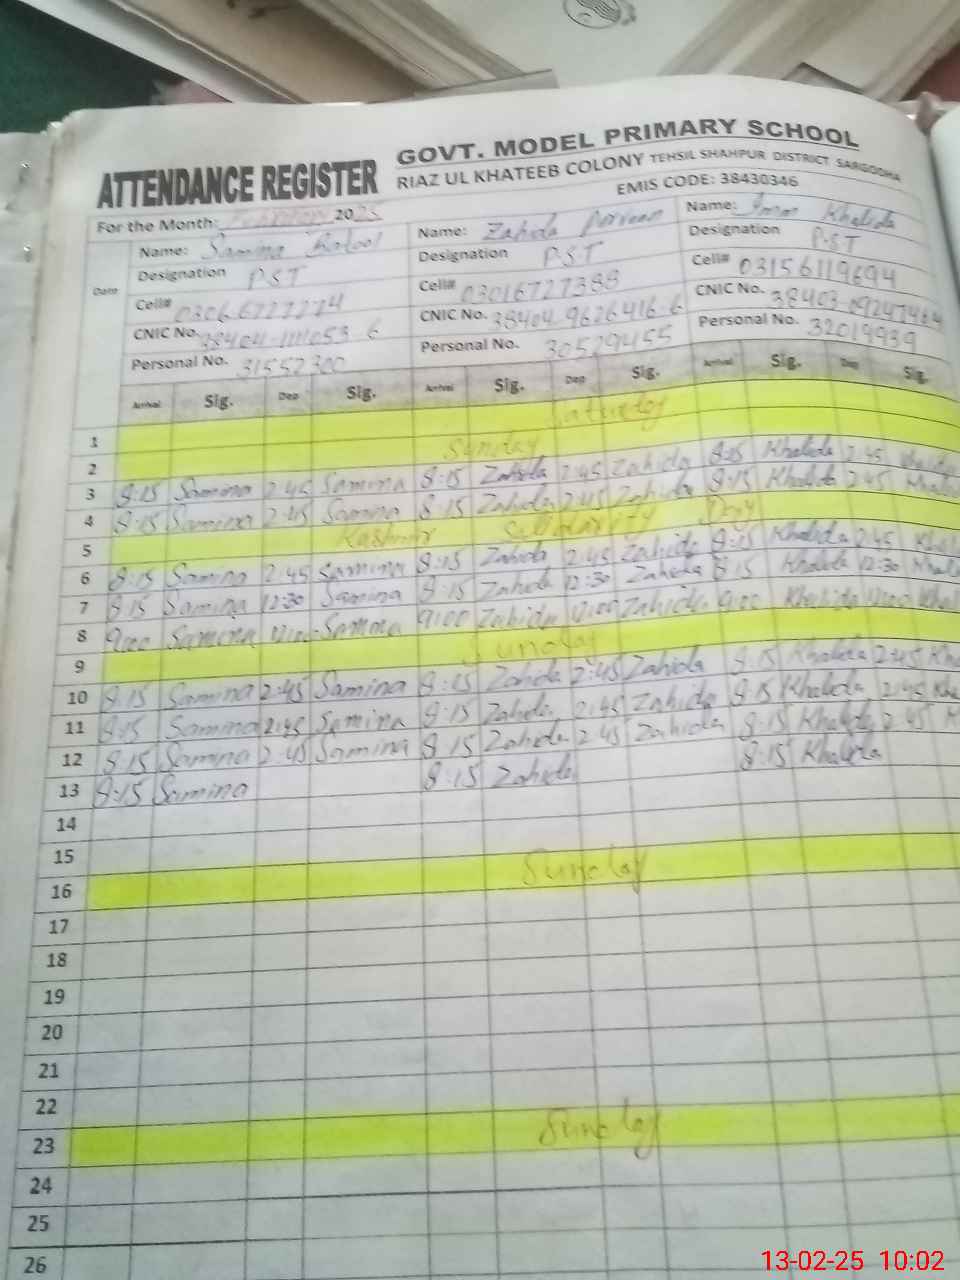 GOVT. MODEL PRIMARY SCHOOL
ATTENDANCE REGISTER RIAZ UL KHATEEB COLONY TEHSIL SHAHPUR DISTRICT SARGODHA
EMIS CODE: 38430346
For the Month: February 2025
Date
Name: Samina Batool Name: Zahida Parveen Name: Khalida
Designation P.S.T Designation P.S.T Designation P.S.T
Cell# 03066727274 Cell# 03016727388 Cell# 03156119694
CNIC No. CNIC No. 38404 9626416-6 CNIC No.
Personal No. 31552300 Personal No. 30529455 Personal No. 32019939
Arrival Sig. Dep Sig. Arrival Sig. Dep Sig. Arrival Sig. Dep Sig.
1 Saturday
2 Sunday
3 8:15 Samina 2:45 Samina 8:15 Zahida 2:45 Zahida 8:15 Khalida 2:45 Khalida
4 8:15 Samina 2:45 Samina 8:15 Zahida 2:45 Zahida 8:15 Khalida 2:45 Khalid
5 Kashmir Solidarity Day
6 8:15 Samina 2:45 Samina 8:15 Zahida 2:45 Zahida 8:15 Khalida 2:45 Khal
7 8:15 Samina 12:30 Samina 8:15 Zahida 12:30 Zahida 8:15 Khalida 12:30 Khal
8 9:00 Samina 12:00 Samina 9:00 Zahida 12:00 Zahida 9:00 Khalida 12:00 Khal
9 Sunday
10 8:15 Samina 2:45 Samina 8:15 Zahida 2:45 Zahida 8:15 Khalida 2:45 Kha
11 8:15 Samina 2:45 Samina 8:15 Zahida 2:45 Zahida 8:15 Khalida 2:45 Kha
12 8:15 Samina 2:45 Samina 8:15 Zahida 2:45 Zahida 8:15 Khalida 2:45 K
13 8:15 Samina 8:15 Zahida 8:15 Khalida
14
15
16 Sunday
17
18
19
20
21
22
23 Sunday
24
25
26
13-02-25 10:02